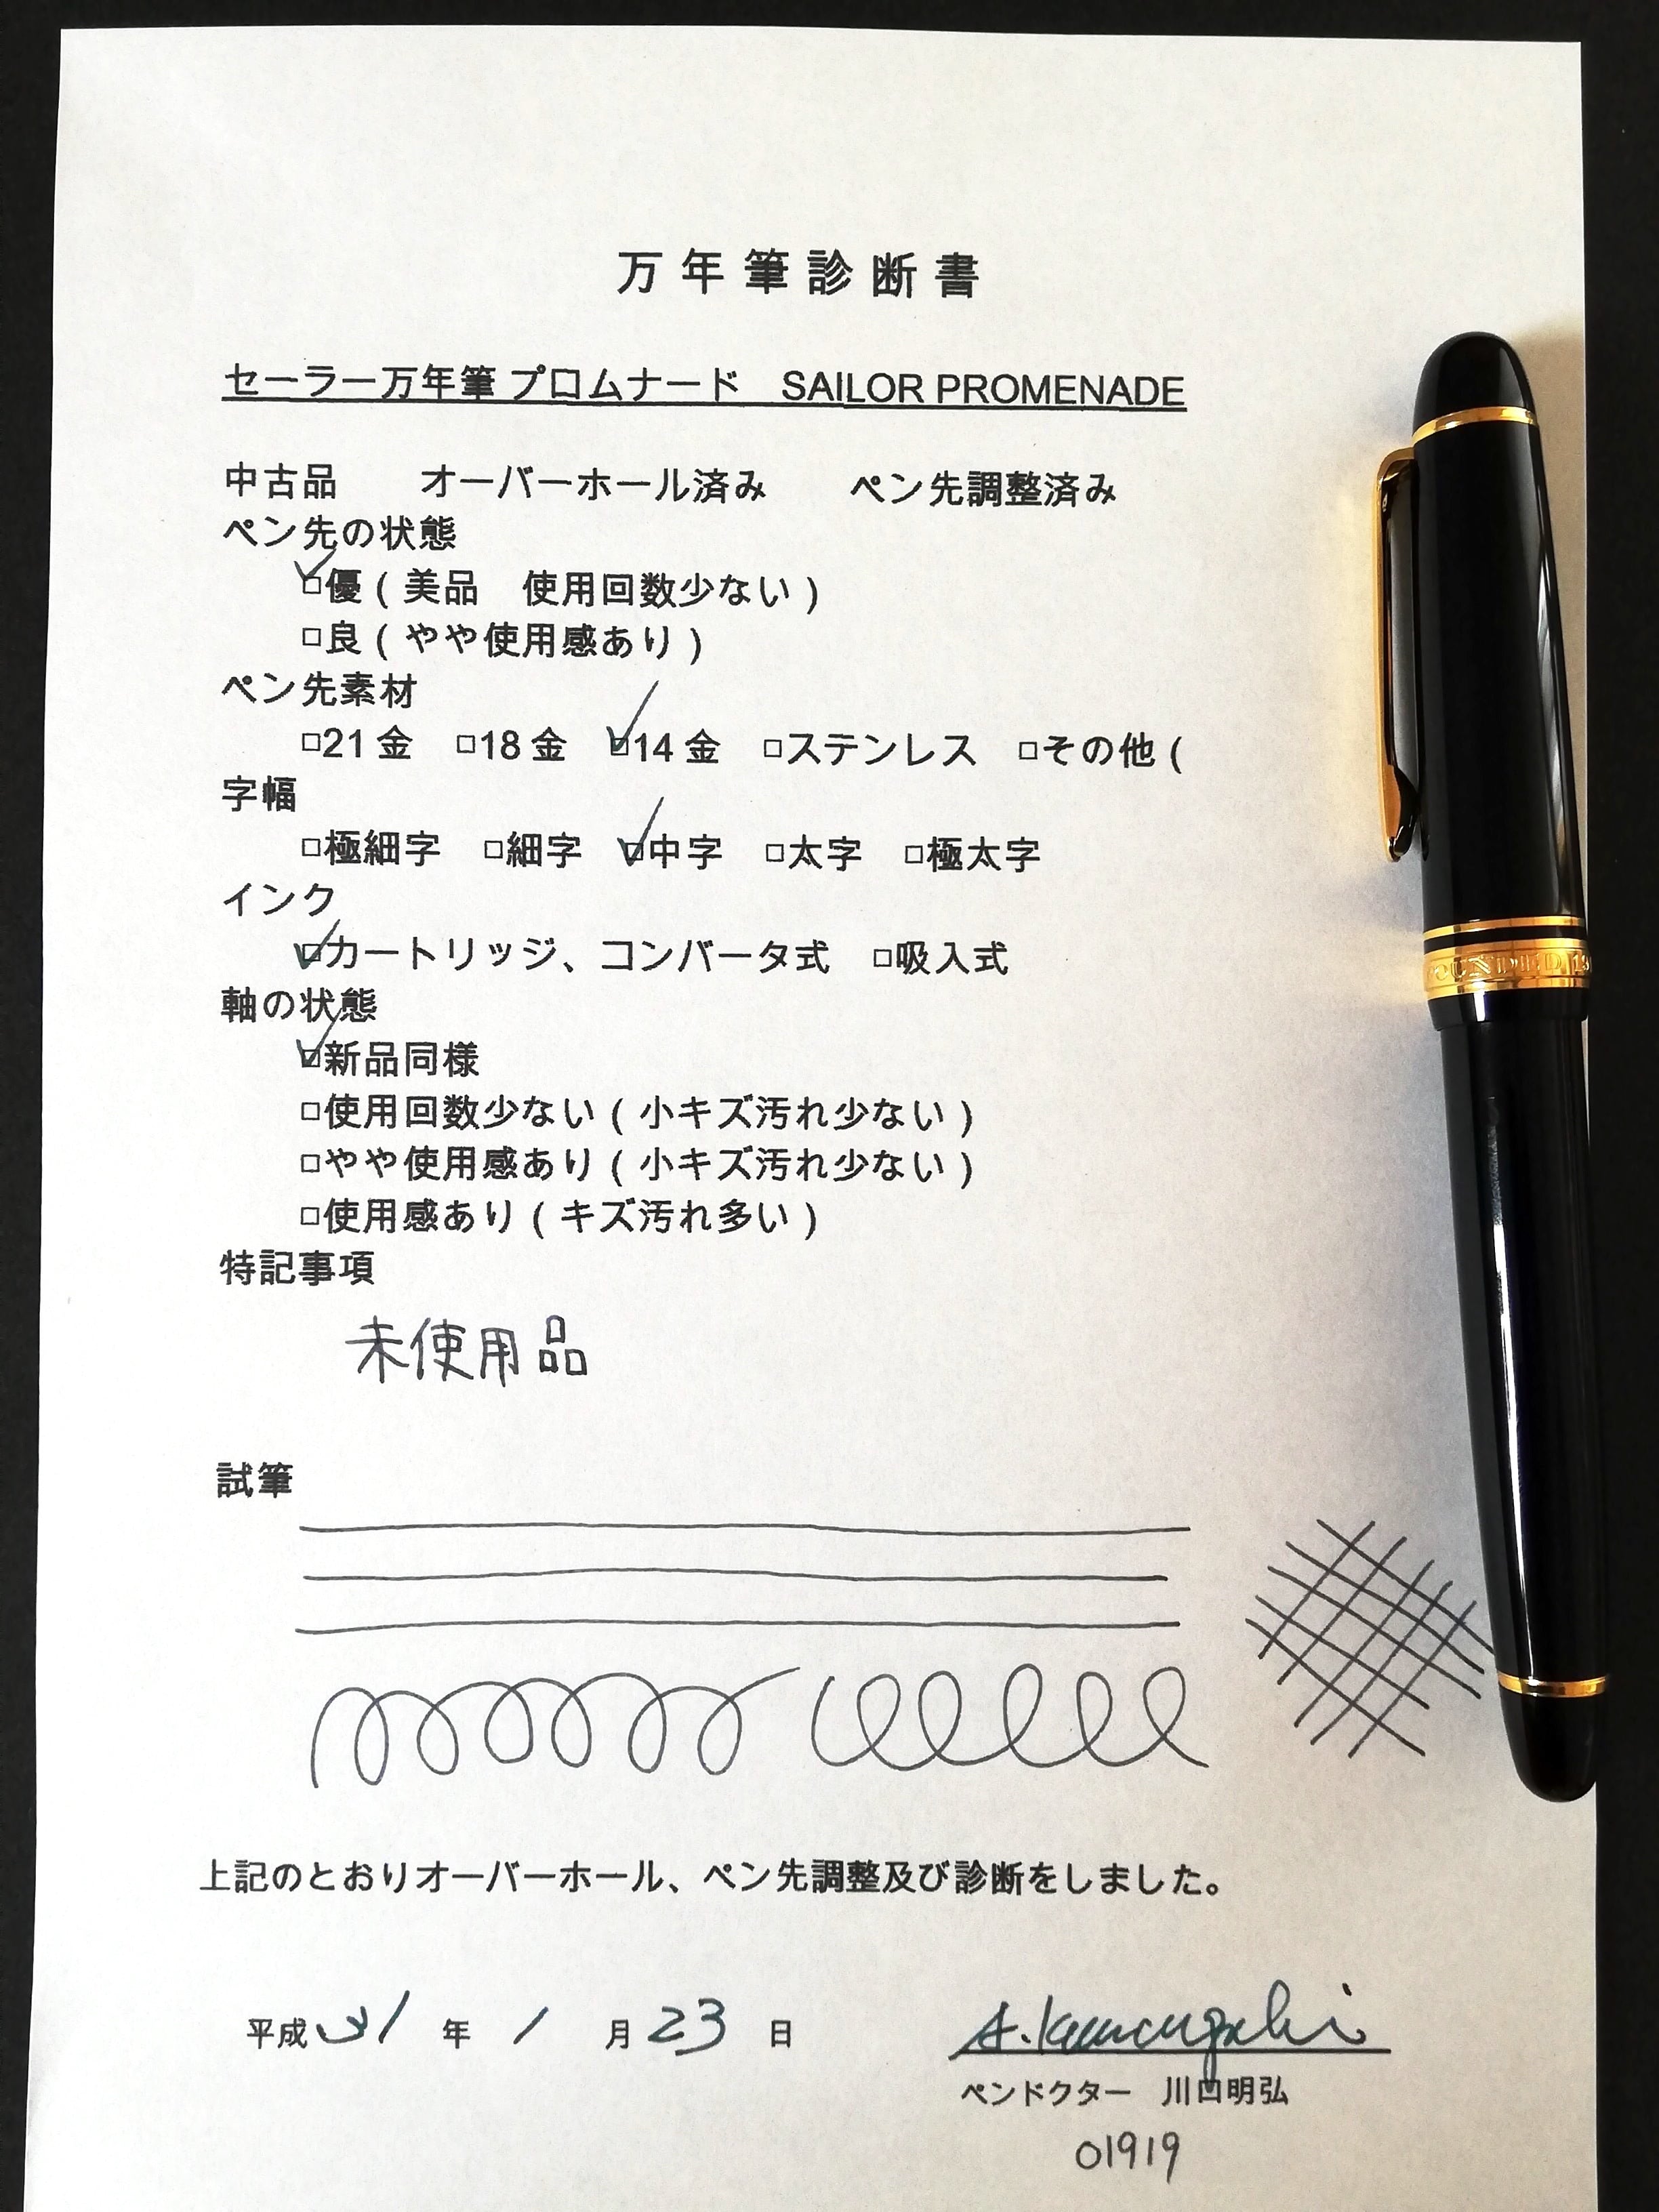 万年筆診断書
セーラー万年筆 プロムナード　SAILOR PROMENADE
中古品　　オーバーホール済み　　ペン先調整済み
ペン先の状態
☑優（美品　使用回数少ない）
□良（やや使用感あり）
ペン先素材
□21金　□18金　☑14金　□ステンレス　□その他（
字幅
□極細字　□細字　☑中字　□太字　□極太字
インク
☑カートリッジ、コンバータ式　□吸入式
軸の状態
☑新品同様
□使用回数少ない（小キズ汚れ少ない）
□やや使用感あり（小キズ汚れ少ない）
□使用感あり（キズ汚れ多い）
特記事項
未使用品
試筆
上記のとおりオーバーホール、ペン先調整及び診断をしました。
平成31年1月23日
A.Kawaguchi
ペンドクター　川口明弘
01919
FOUNDED 19